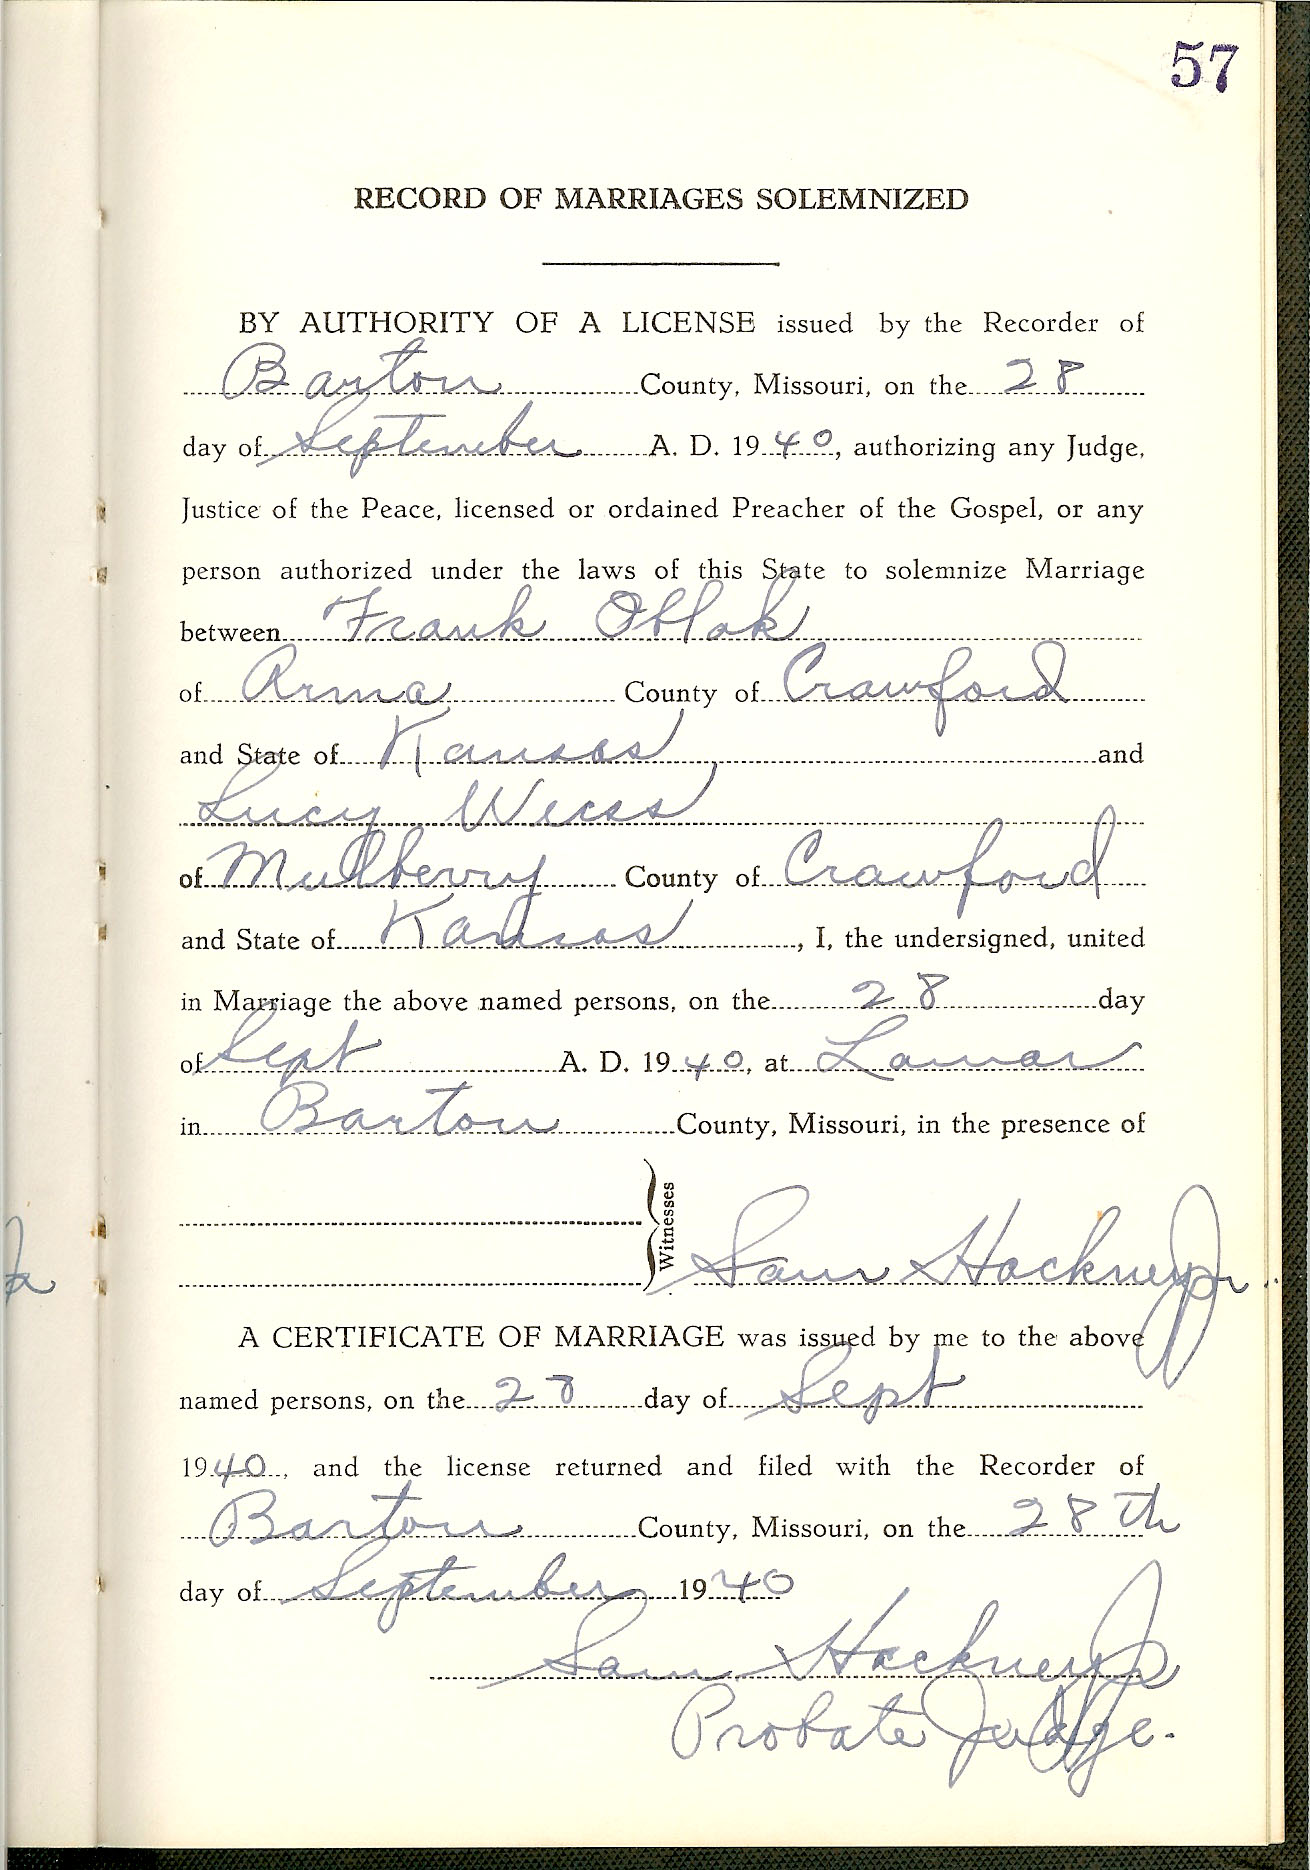 57
RECORD OF MARRIAGES SOLEMNIZED
BY AUTHORITY OF A LICENSE issued by the Recorder of
Barton County, Missouri, on the 28
day of September A. D. 1940, authorizing any Judge,
Justice of the Peace, licensed or ordained Preacher of the Gospel, or any
person authorized under the laws of this State to solemnize Marriage
between Frank Oblak
of Arma County of Crawford
and State of Kansas and
Lucy Weiss
of Mulberry County of Crawford
and State of Kansas, I, the undersigned, united
in Marriage the above named persons, on the 28 day
of Sept A. D. 1940, at Lamar
in Barton County, Missouri, in the presence of
Witnesses
Sam Hackney Jr.
A CERTIFICATE OF MARRIAGE was issued by me to the above
named persons, on the 28 day of Sept
1940, and the license returned and filed with the Recorder of
Barton County, Missouri, on the 28th
day of September 1940
Sam Hackney Jr
Probate Judge.